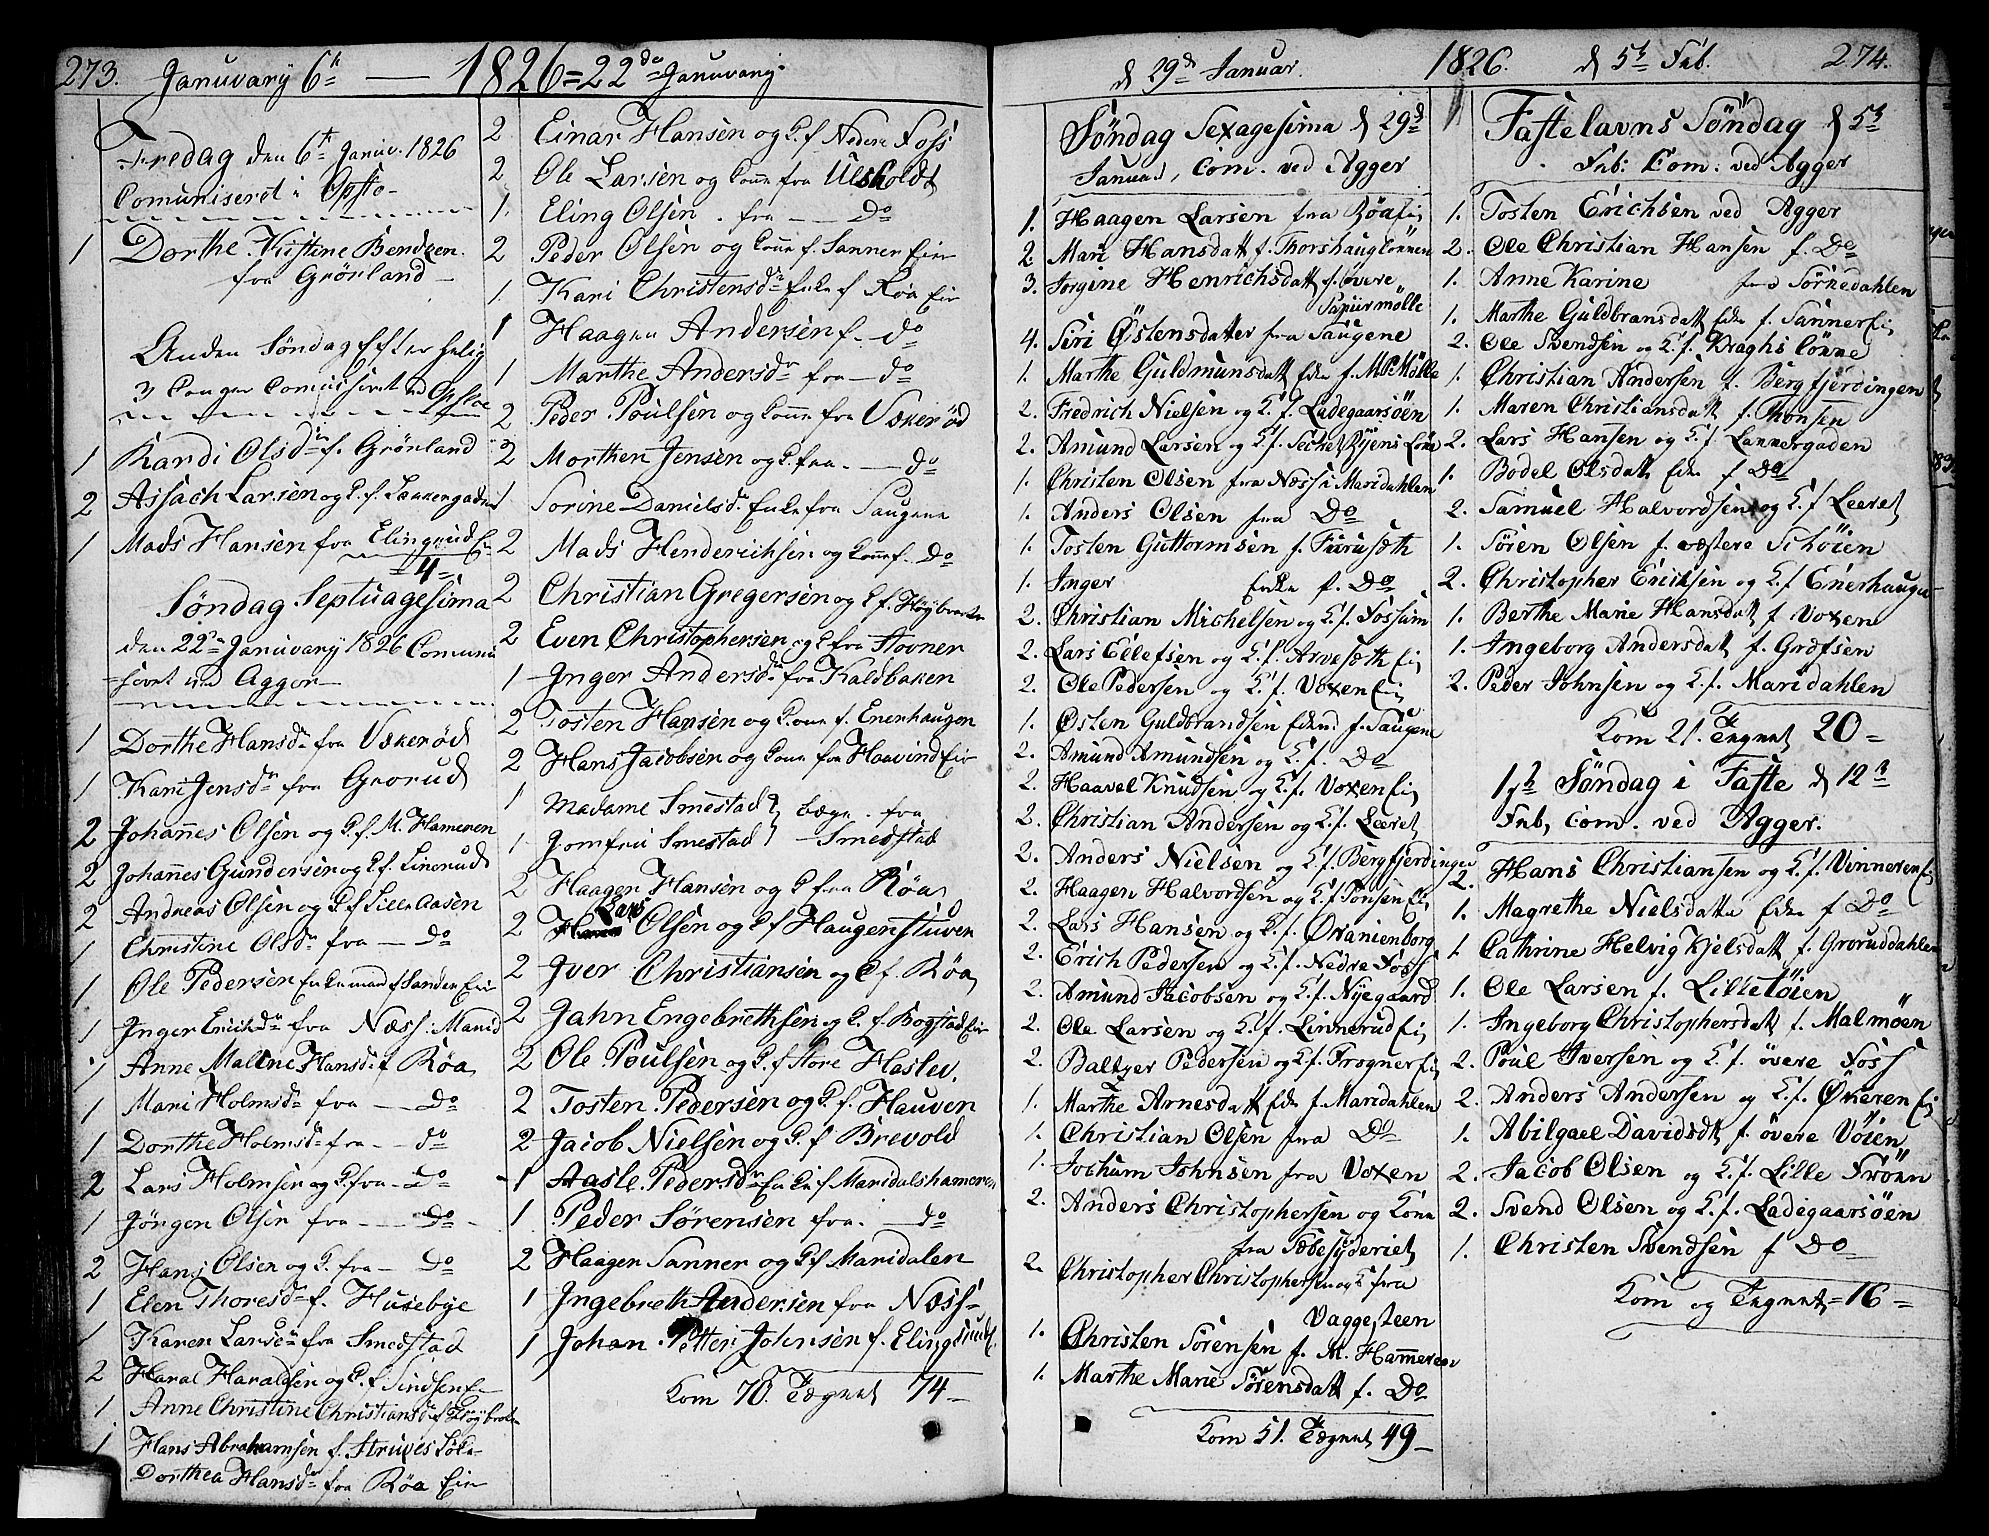 273. Januvary 6te — 1826 = 22de Januvary
Fredag den 6te Januv. 1826
Comuniseret i Opslo
1 Dorthe Kistine Bendzen
fra Grønland
Anden Søndag Efter helig
3 Konger Comuniseret ved Opsloe
1 Kardi Olsdr f. Grønland
2 Assach Larsen og K. f. Lakkergaden
1 Mads Hansen fra Elingrud E
= 4 =
Søndag Septuagesima
den 22de Januvary 1826 Comuni
seret ved Aggor
1 Dorthe Hansdr fra Uskerød
1 Kari Jensdr fra Grorud
2 Johannes Olsen og K. f. M. Hameren
2 Johannes Gundersen og K f. Linerud
2 Andreas Olsen og K f Lille Aasen
1 Christine Olsdr fra — do
1 Ole Pedersen Enkemad f Sanden Eie
1 Inger Erichsdr fra Næss. Marid
1 Anne Malene Hansdr f Røa
1 Mari Holmsdr fra — Do
1 Dorthe Holmsdr fra — do
2 Lars Holmsen og K. fra — Do
1 Jörgen Olsen fra — Do
2 Hans Olsen og K. fra — Do
1 Elen Thoresdr f. Husebye
1 Karen Larsdr fra Smedstad
2 Haral Haraldsen og K. f Sindsen E
1 Anne Christine Christiansdr f Høybroten
1 Hans Abrahamsen f. Struves Løke
Dorthea Hansdr fra Røa Eie
2 Einar Hansen og K. f Nedere Foss
2 Ole Larsen og Kone fra Ulsholdt
1. Eling Olsen . fra — Do
2 Peder Olsen og Kone f. Sanner Eie
1. Kari Christensdr Enke f Røa Eie
1 Haagen Andersen f. do
1 Marthe Andersdr fra — do
2 Peder Poulsen og Kone fra Uskerød
2 Morthen Jensen og K. fra — do
1 Sorine Danielsdr Enke fra Saugene
2 Mads Henderichsen og Kone f. Do
2 Christian Gregersen og K f. Høybraaten
2 Even Christophersen og K fra Stovner
1 Inger Andersdr fra Kaldbaken
2 Tosten Hansen og Kone f. Enerhaugen
2 Hans Jacobsen og Kone fra Haavind Eie
1 Madame Smestad } bægge fra
1 Jomfru Smestad } Smedstad
2 Haagen Hansen og K fra Røa
2 Lars Olsen og K f Haugenstuven
2 Iver Christiansen og K f. Røa
2 Jahn Engebrethsen og K. f. Bogstad Eie
2 Ole Poulsen og K. f Store Haslev.
2 Tosten Pedersen og K. f. Hauven
2 Jacob Nielsen og K. f Brevold
1 Aasle Pedersdr Enke f Maridalshameren
1 Peder Sørensen fra — do
2 Haagen Sanner og K f Maridalen
1 Ingebreth Andersen fra Næss
1 Johan Petter Johnsen f. Elingsrud E.
Kom 70. Tegnet 74
d 29de Januar. 1826. d 5te Feb. 274.
Søndag Sexagesima d 29de
Januar, com. ved Agger
1. Haagen Larsen fra Røa Ei
2. Mari Hansdatt f. Thorshauglønnen
3. Jorgine Henrichsdatt f. øvere
Papirmølle
4. Siri Østensdatter fra Saugene
1. Marthe Guldmunsdatt Enke f. M P. Mölle
2. Fredrich Nielsen og K. f. Ladegaarsöen
2. Amund Larsen og K. f. Secket Ryens Løke
1. Christen Olsen fra Næss i Maridahlen
1. Anders Olsen fra Do
1. Tosten Guttormsen f. Furusæth
1. Inger Enke f. Do
2. Christian Michelsen og K. f. Fossum
2. Lars Ellefsen og K. f. Arvesæth Ei
2. Ole Pedersen og K. f. Voxen Ei
1. Østen Guldbrandsen Enkm: f. Saugene
2. Amund Amundsen og K. f. Do
2. Haavel Knudsen og K. f. Voxen Ei
2. Christian Andersen og K. f. Leeret
2. Anders Nielsen og K. f. Bergfjerdingen
2. Haagen Halvordsen og K. f. Tonsen Ei
2. Lars Hansen og K. f. Oranienborg
2. Erich Pedersen og K. f. Nedre Foss
2. Amund Jacobsen og K. f. Nyegaard
2. Ole Larsen og K. f. Linnerud Ei
2. Baltzer Pedersen og K. f. Frogner Ei
1. Marthe Arnesdatt Enke f. Maridahlen
1. Christian Olsen fra Do
1. Jochum Johnsen fra Voxen
2. Anders Christophersen og Kone
fra Sæbesyderiet
2. Christopher Christophersen og K fra
Vaggesteen
1. Christen Sörensen f. M. Hammeren
1. Marthe Marie Sörensdatt f. Do
Kom 51. Tegnet 49
Fastelavns Söndag d 5te
Feb: Com: ved Agger
1. Tosten Erichsen ved Agger
2. Ole Christian Hansen f. Do
1. Anne Karine fra Sörkedahlen
1. Marthe Guldbransdatt Enke f. Sanner Ei
2. Ole Svendsen og K. f. Kraghs lönne
1. Christian Andersen f. Bergfjerdingen
1. Maren Christiansdatt f. Thonsen
2. Lars Hansen og K. f. Lannergaden
1. Bodel Olsdatt Enke f Do
2. Samuel Halvordsen og K. f Leeret
1. Sören Olsen f. væstere Schöien
2. Christopher Ericksen og K. f. Enerhaugen
1. Berthe Marie Hansdatt f Voxen
1. Ingeborg Andersdatt f. Grefsen
2. Peder Johnsen og K. f. Maridahlen
Kom 21. Tegnet 20
1ste Söndag i Faste d 12te
Feb, com. ved Agger.
2. Hans Christiansen og K. f. Vinneren Ei
1. Magrethe Nielsdatte Enke f Do
1. Cathrine Helvig Kjelsdatt f. Groruddahlen
1. Ole Larsen f. Lilletöien
1. Ingeborg Christophersdatt f. Malmöen
2. Poul Iversen og K. f. övere Foss
2. Anders Andersen og K. f. Økeren Ei
1. Abilgael Davidsdt f. övere Vöien
2. Jacob Olsen og K. f. Lille Frönn
2. Svend Olsen og K. f. Ladegaarsöen
1. Christen Svendsen f Do
Kom og Tegnet = 16